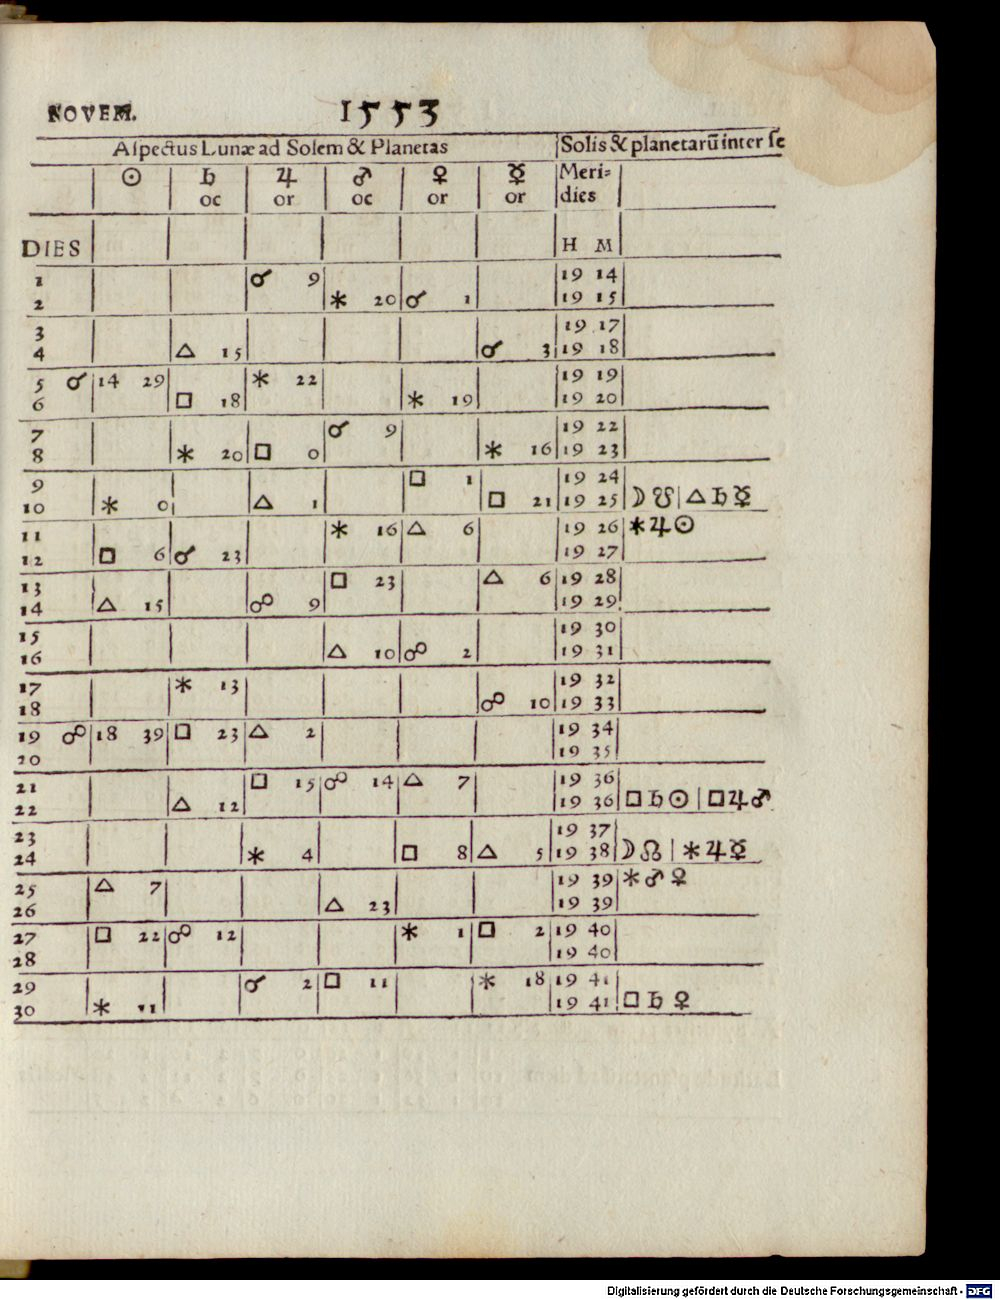 NOVEM. 1553
Aſpectus Lunæ ad Solem & Planetas | Solis & planetarū inter ſe
☉ | ♄ | ♃ | ♂ | ♀ | ☿ | Meri=
oc | or | oc | or | or | dies
DIES | H M
1 | ☌ 9 | 19 14
2 | ⚹ 20 | ☌ 1 | 19 15
3 | 19 17
4 | △ 15 | ☌ 3 | 19 18
5 ☌ | 14 29 | ⚹ 22 | 19 19
6 | □ 18 | ⚹ 19 | 19 20
7 | ☌ 9 | 19 22
8 | ⚹ 20 | □ 0 | ⚹ 16 | 19 23
9 | □ 1 | 19 24
10 | ⚹ 0 | △ 1 | □ 21 | 19 25 | ☽ ☋ | △ ♄ ☿
11 | ⚹ 16 | △ 6 | 19 26 | ⚹ ♃ ☉
12 | □ 6 | ☌ 23 | 19 27
13 | □ 23 | △ 6 | 19 28
14 | △ 15 | ☍ 9 | 19 29
15 | 19 30
16 | △ 10 | ☍ 2 | 19 31
17 | ⚹ 13 | 19 32
18 | ☍ 10 | 19 33
19 ☍ | 18 39 | □ 23 | △ 2 | 19 34
20 | 19 35
21 | □ 15 | ☍ 14 | △ 7 | 19 36
22 | △ 12 | 19 36 | □ ♄ ☉ | □ ♃ ♂
23 | 19 37
24 | ⚹ 4 | □ 8 | △ 5 | 19 38 | ☽ ☊ | ⚹ ♃ ☿
25 | △ 7 | 19 39 | ⚹ ♂ ♀
26 | △ 23 | 19 39
27 | □ 22 | ☍ 12 | ⚹ 1 | □ 2 | 19 40
28 | 19 40
29 | ☌ 2 | □ 11 | ⚹ 18 | 19 41
30 | ⚹ 11 | 19 41 | □ ♄ ♀
Digitalisierung gefördert durch die Deutsche Forschungsgemeinschaft - DFG